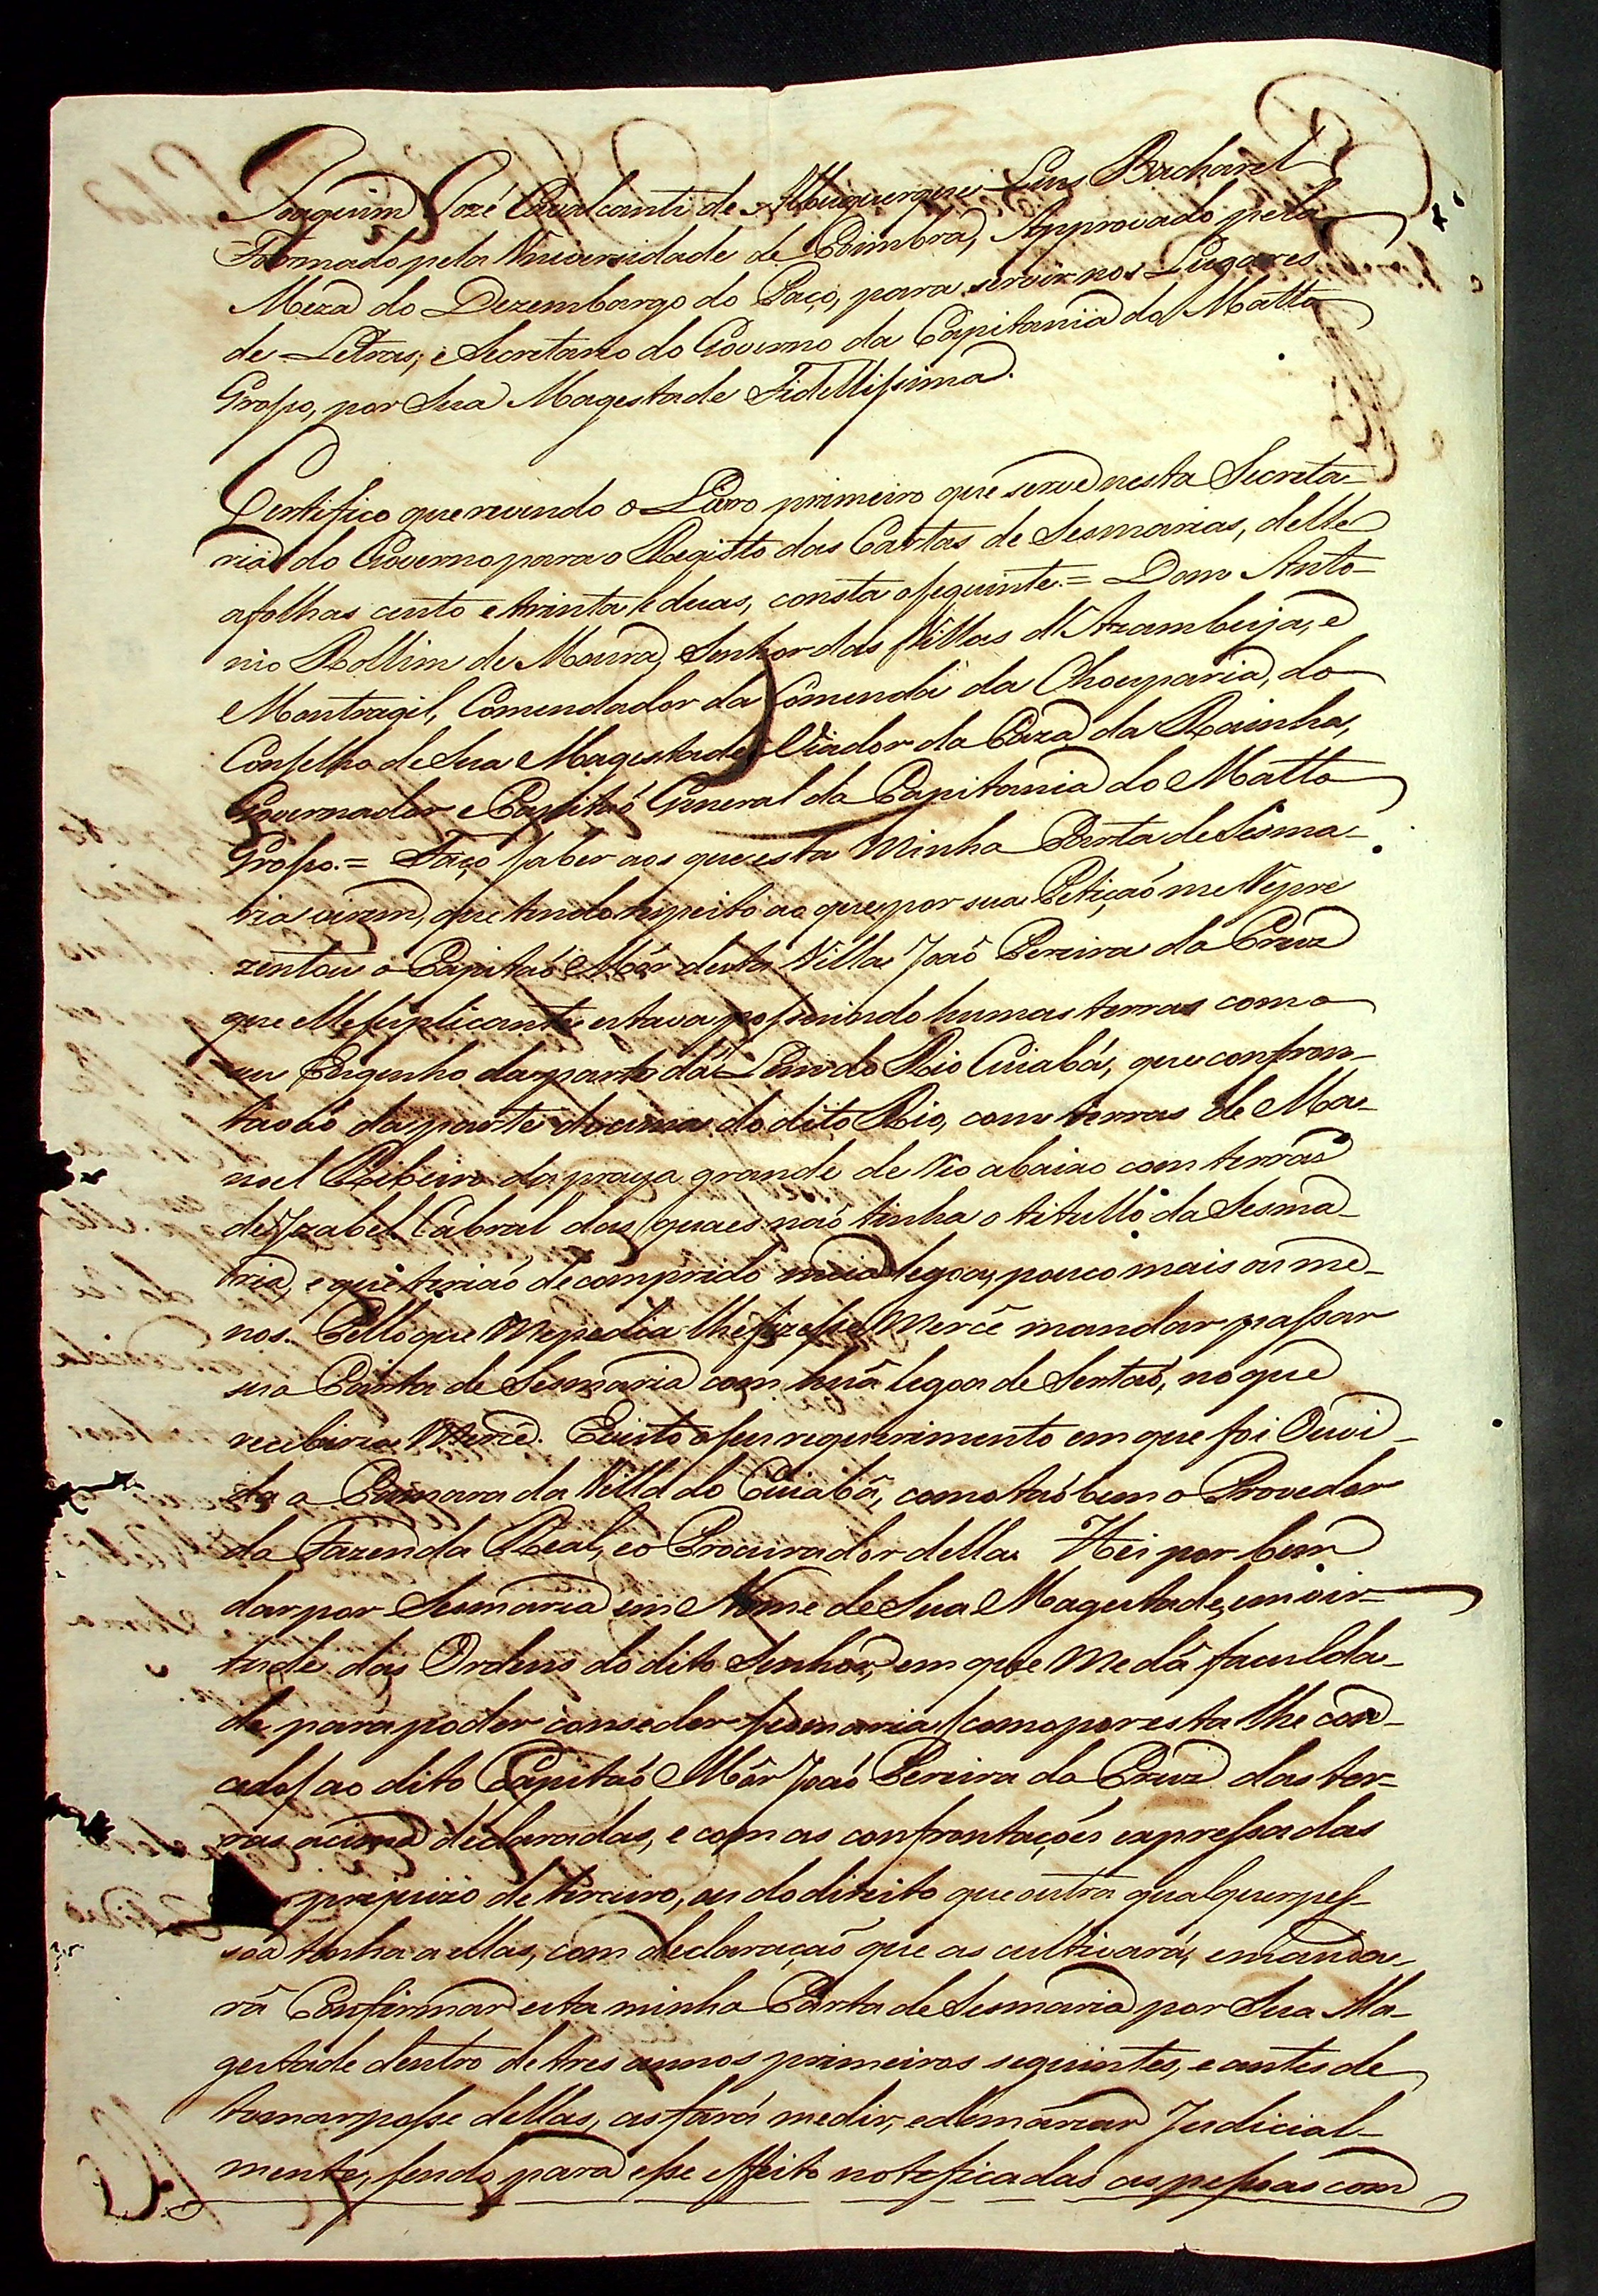 Joaquim José Cavalcanti de Albuquerque Lins Bacharel
Formado pela Universidade de Coimbra, Approvado pela
Meza do Dezembargo do Paço, para servir nos Lugares
de Letras, e Secretario do Governo da Capitania do Matto
Groſso, por Sua Magestade Fidelliſsima.
Certifico que revendo o Livro primeiro que serve nesta Secreta-
ria do Governo para o Registo das Cartas de Sesmarias, delle
afolhas cento e trinta e duas, consta oſeguinte. = Dom Anto-
nio Rollim de Moura, Senhor das Villas d'Azambuja, e
Montragil, Comendador da Comenda da Chouparia, do
Conſelho de Sua Magestade, Viador da Caza da Rainha,
Governador e Capitaõ General da Capitania do Matto
Groſso. = Faço ſaber aos que esta Minha Carta de Sesma-
ria virem, que tendo respeito ao que por sua Petiçaõ me Repre
zentou o Capitaõ Mór desta Villa Joaõ Pereira da Cruz
que elle ſuplicante estava poſsuindo humas terras com o
seu Engenho da parte dá Lem do Rio Cuiabá, que confron-
tavaõ da parte de cima do dito Rio, com terras de Ma-
noel Ribeiro da praya grande de Rio abaixo com terras
de Izabel Cabral das quaes naõ tinha o titullo da Sesma-
ria, e que teriaõ de comprido meia legoa, pouco mais ou me-
nos. Pello que Me pedia lhe fizeſse Mercê mandar paſsar
sua Carta de Sesmaria com huã legoa de Sertaõ, no que
receberia Mercê. E visto oſeu requerimento em que foi Ouvi-
da a Camara da Villa do Cuiabá, como taõ bem o Provedor
da Fazenda Real, e o Procurador della. Hei por bem
dar por Sesmaria em Nome de Sua Magestade, em vir-
tude das Ordens do dito Senhor, em que me dá faculda-
de para poder conseder ſesmarias (como por esta lhe con-
cedo) ao dito Capitaõ Mór Joaõ Pereira da Cruz das ter-
ras acima declaradas, e com as confrontações expreſsadas
prejuizo de terceiro, ou do direito que outra qualquer peſ-
soa tenha a ellas, com declaraçaõ que as cultivará, e manda-
rá Confirmar esta minha Carta de Sesmaria por Sua Ma-
gestade dentro de tres annos primeiros seguintes, e antes de
tomar poſse dellas, as fará medir, e demarcar Judicial-
mente, ſendo para eſse effeito noteficadas as peſsoas com